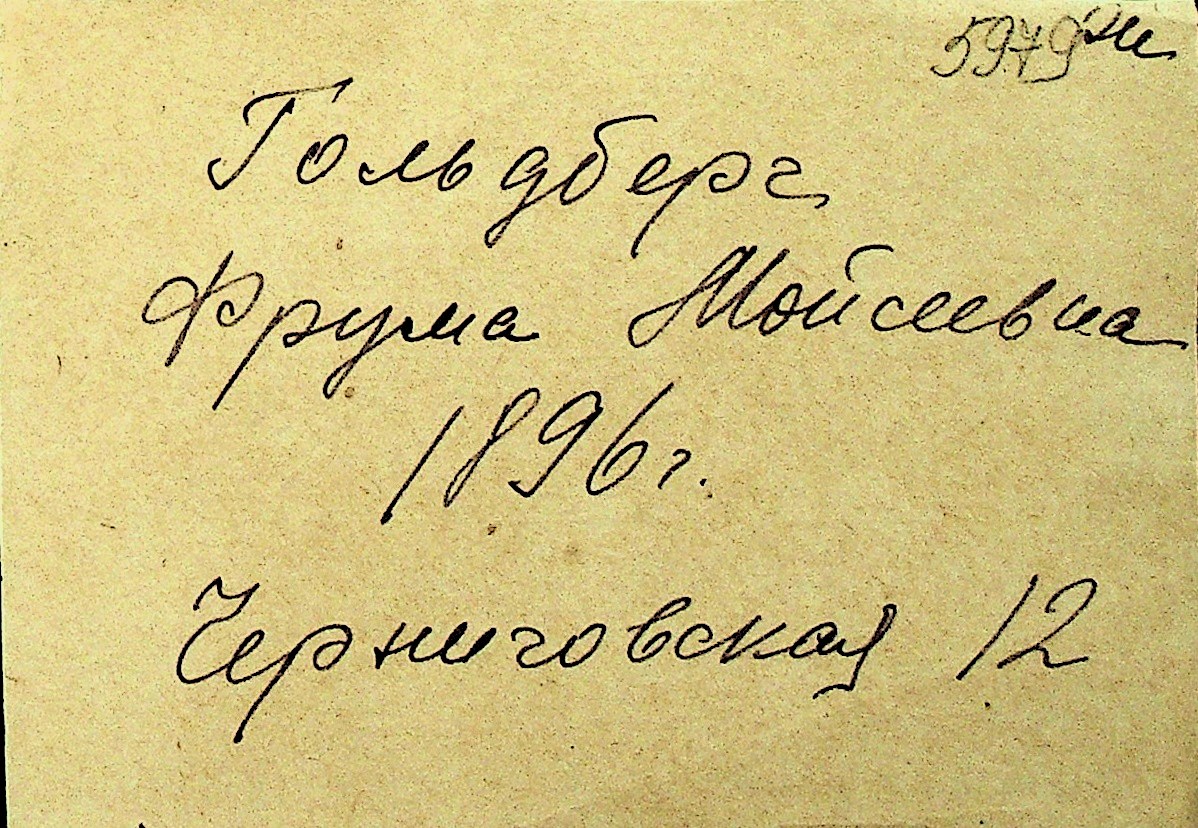 5979
Гольдберг
Фрума Мойсеевна
1896г.
Черниговская 12